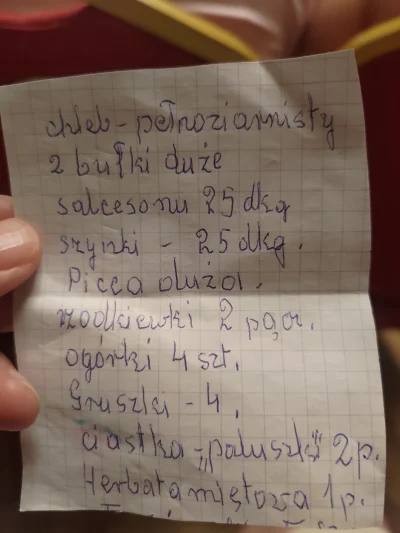 chleb - pełnoziarnisty
2 bułki duże
salcesonu 25 dkg
szynki - 25 dkg.
Picca duża.
rzodkiewki 2 pącz.
ogórki 4 szt.
Gruszki - 4.
ciastka - „paluszki" 2 p.
Herbata miętowa 1 p.